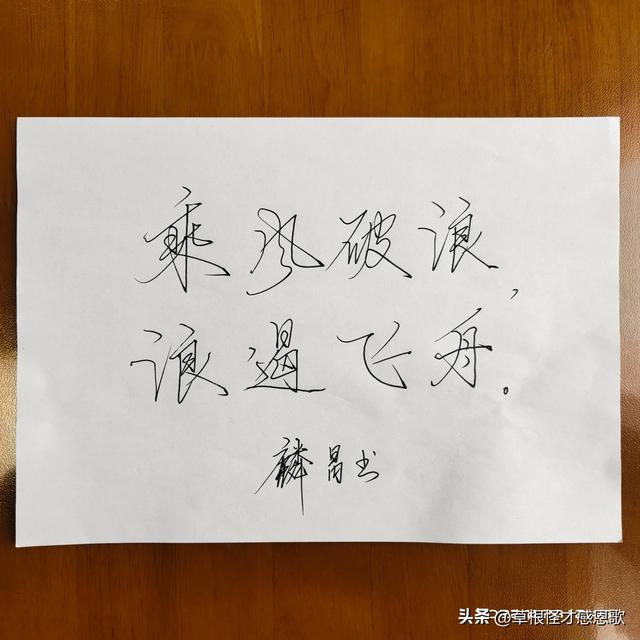 乘风破浪，
浪遏飞舟。
麟昌书
头条 @草根怪才感恩歌